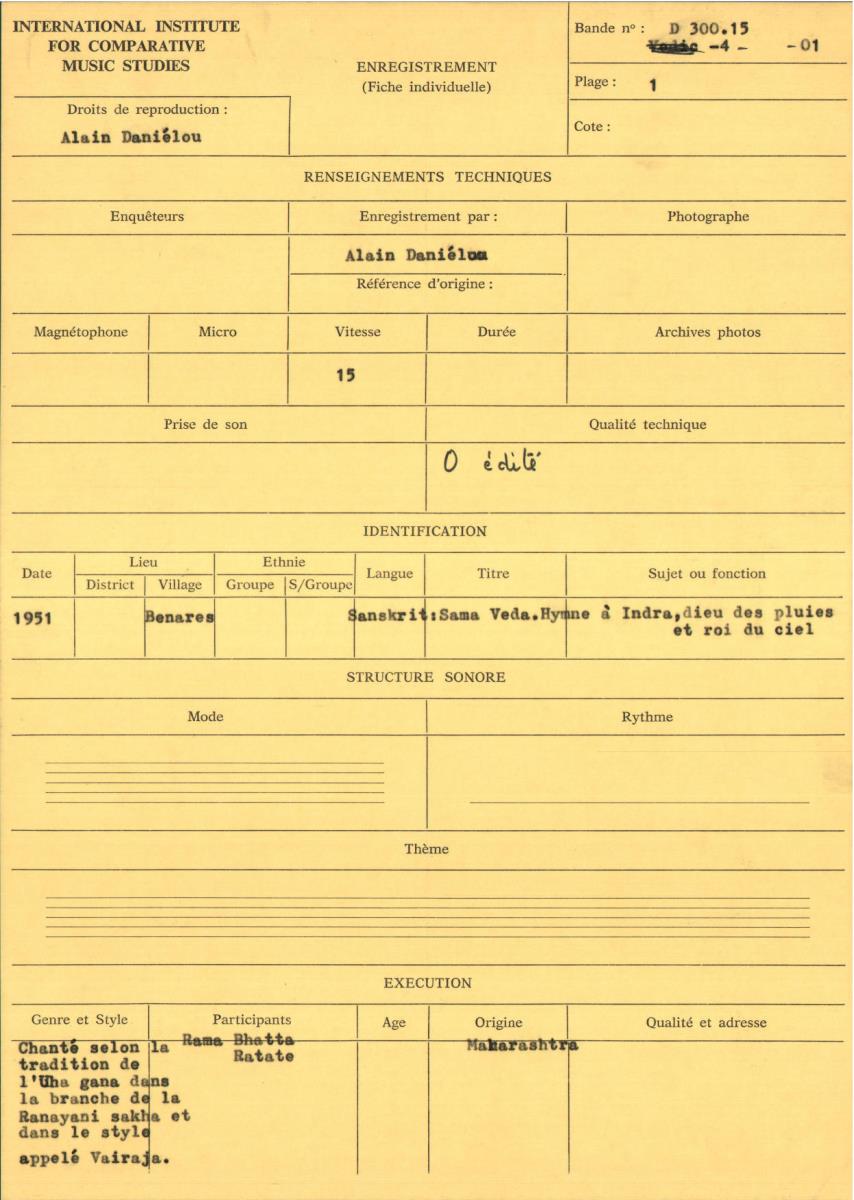 INTERNATIONAL INSTITUTE
FOR COMPARATIVE
MUSIC STUDIES
Droits de reproduction :
Alain Daniélou
ENREGISTREMENT
(Fiche individuelle)
Bande nº : D 300.15
Vedic -4 - -01
Plage : 1
Cote :
RENSEIGNEMENTS TECHNIQUES
Enquêteurs
Enregistrement par :
Photographe
Alain Daniélou
Référence d'origine :
Magnétophone
Micro
Vitesse
Durée
Archives photos
15
Prise de son
Qualité technique
O édité
IDENTIFICATION
Date
Lieu
District
Village
Ethnie
Groupe
S/Groupe
Langue
Titre
Sujet ou fonction
1951
Benares
Sanskrit:Sama Veda.Hymne à Indra,dieu des pluies
et roi du ciel
STRUCTURE SONORE
Mode
Rythme
Thème
EXECUTION
Genre et Style
Participants
Age
Origine
Qualité et adresse
Chanté selon la
tradition de
l'Uha gana dans
la branche de la
Ranayani sakha et
dans le style
appelé Vairaja.
Rama Bhatta
Ratate
Maharashtra